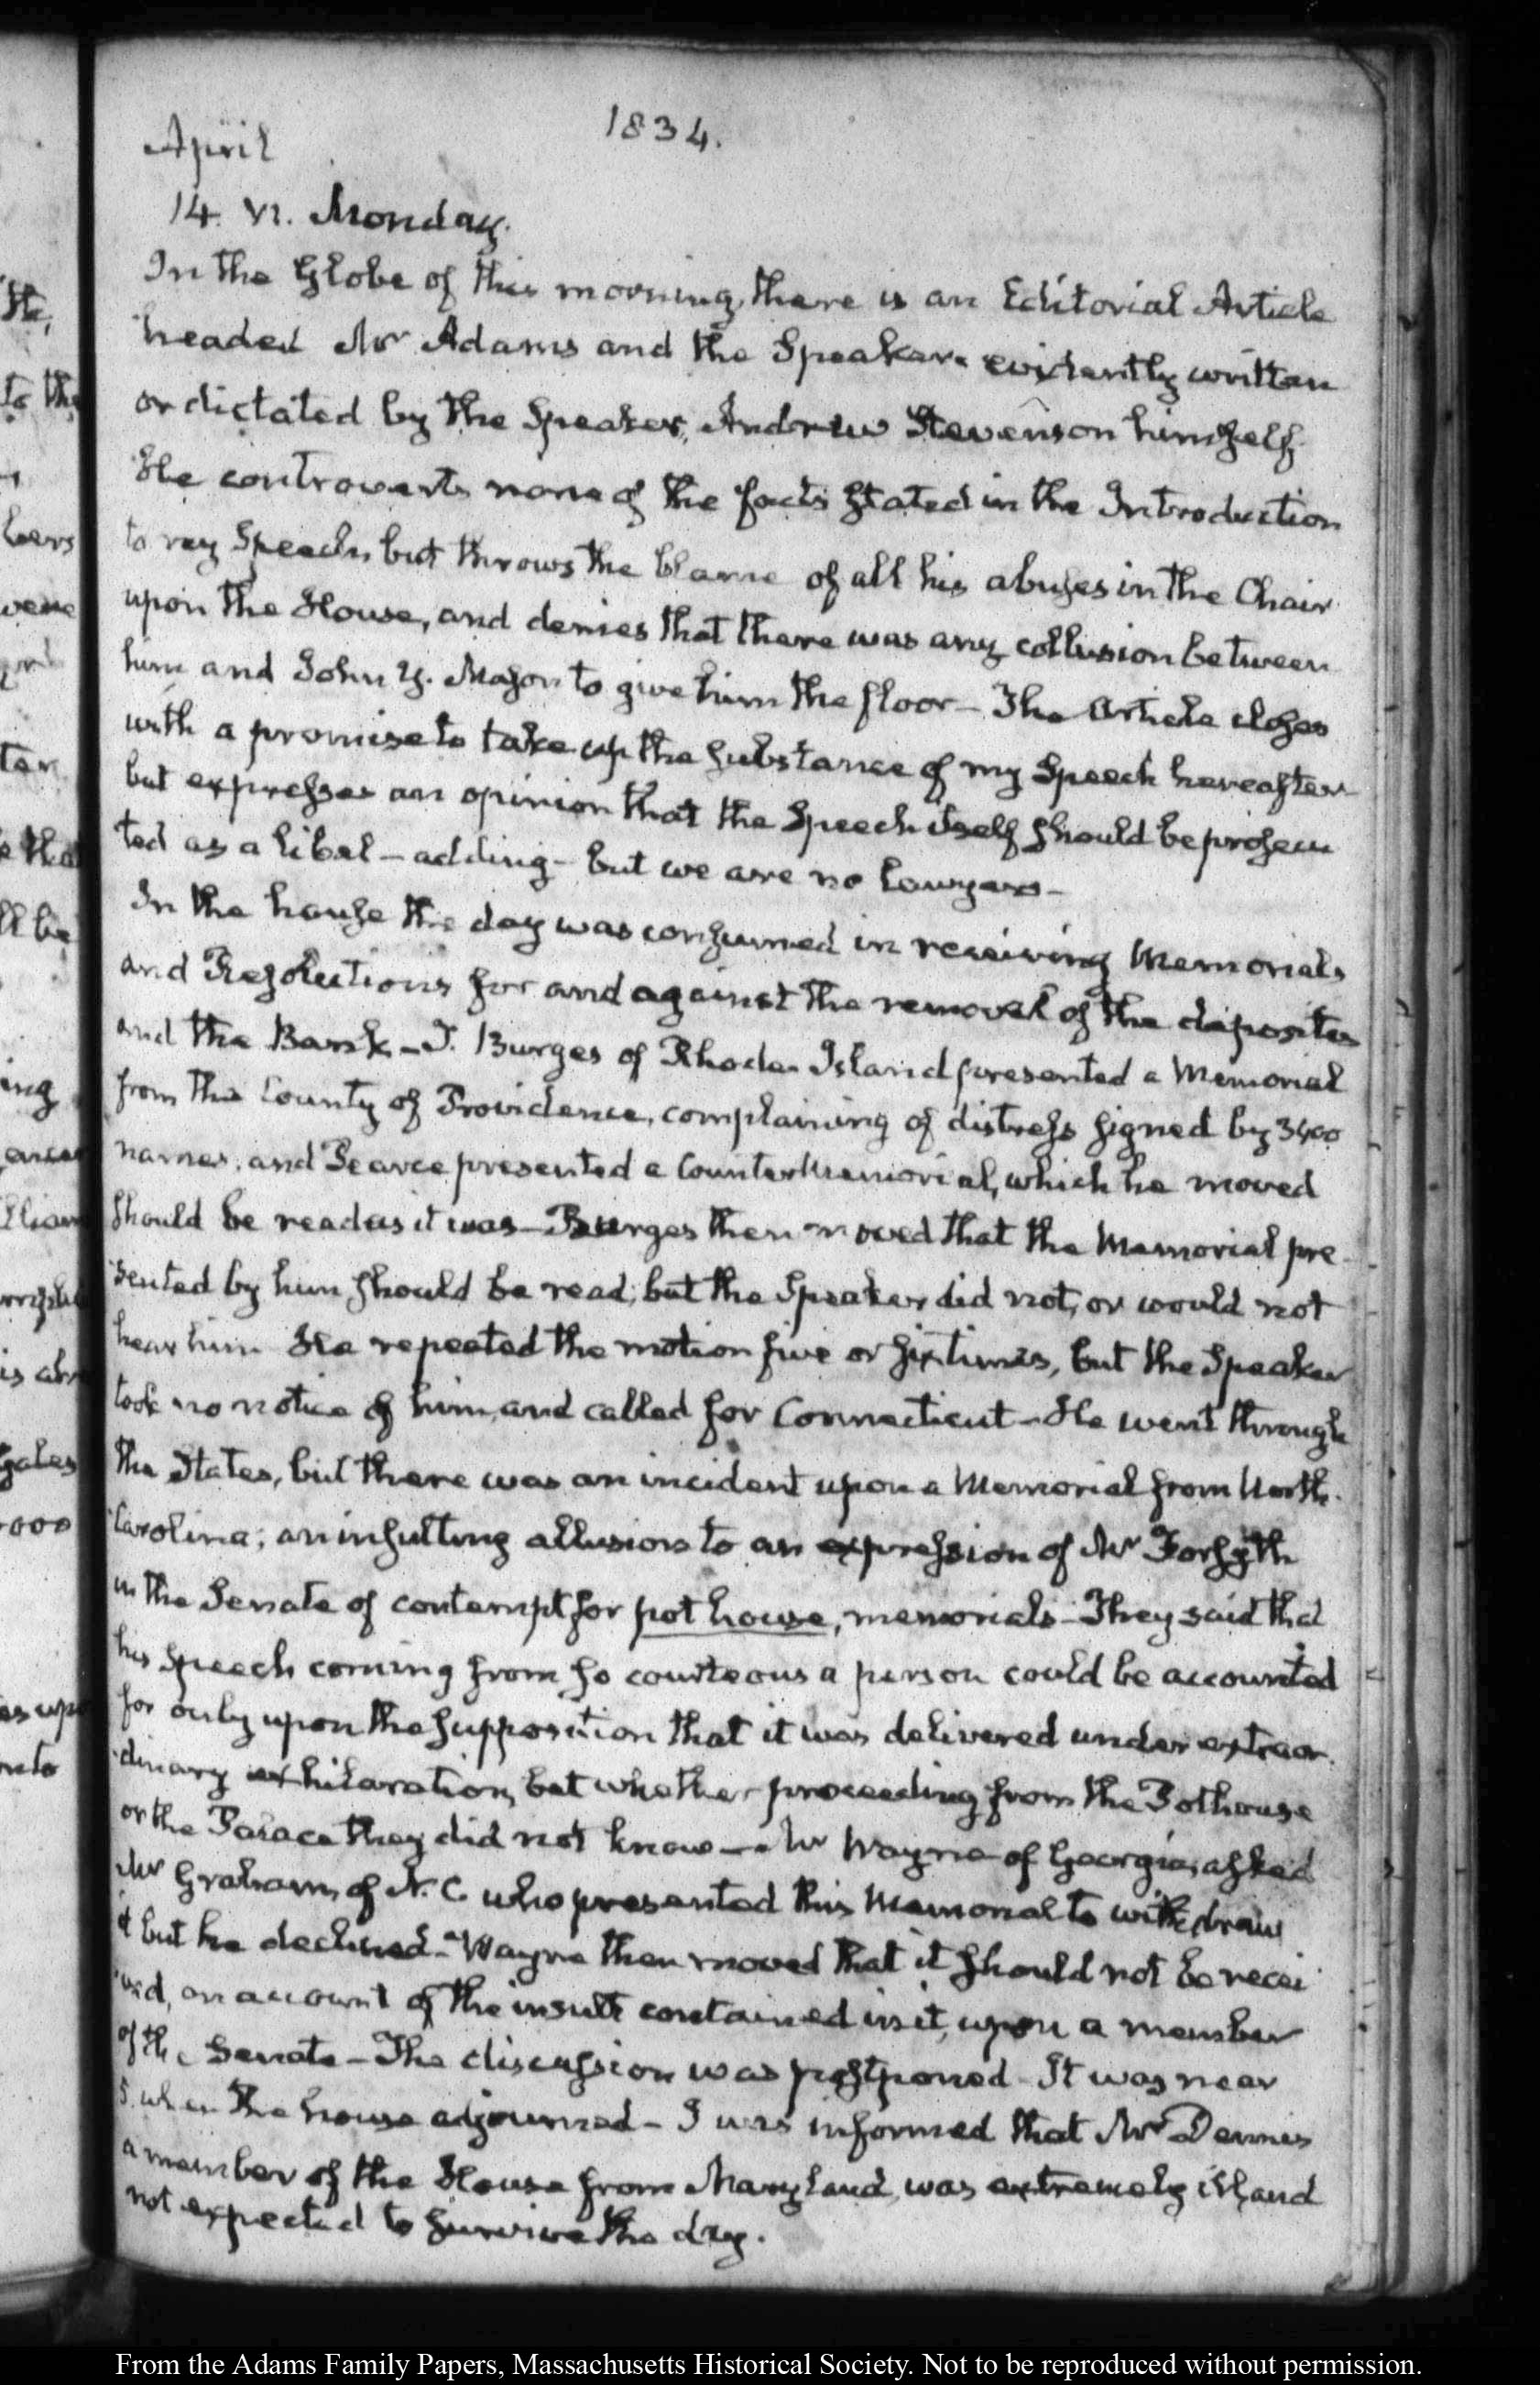 1834.
April
14. VI. Monday.
In the Globe of this morning, there is an Editorial Article
headed Mr Adams and the Speaker. evidently written
or dictated by the Speaker, Andrew Stevenson himself.
He controverts none of the facts stated in the Introduction
to my Speech, but throws the blame of all his abuses in the Chair
upon the House, and denies that there was any collusion between
him and John Y. Mason to give him the floor — The Article closes
with a promise to take up the substance of my Speech hereafter
but expresses an opinion that the Speech itself should be prosecu
ted as a libel — adding — but we are no lawyers —
In the house the day was consumed in receiving Memorials
and Resolutions for and against the removal of the deposites
and the Bank — T. Burges of Rhode-Island presented a Memorial
from the County of Providence, complaining of distress signed by 3400
names, and Pearce presented a Counter Memorial, which he moved
should be read as it was — Burges then moved that the Memorial pre
sented by him should be read; but the Speaker did not, or would not
hear him He repeated the motion five or six times, but the Speaker
took no notice of him, and called for Connecticut — He went through
the States, but there was an incident upon a Memorial from North-
Carolina; an insulting allusion to an expression of Mr Forsyth
in the Senate of contempt for pot house, memorials — They said that
his Speech coming from so courteous a person could be accounted
for only upon the supposition that it was delivered under extraor-
dinary exhilaration, but whether proceeding from the Pothouse
or the Palace they did not know — Mr Wayne of Georgia, asked
Mr Graham, of N. C. who presented this Memorial to withdraw
it but he declined — Wayne then moved that it should not be recei
ved, on account of the insult contained in it, upon a member
of the Senate — The discussion was postponed — It was near
5. when the house adjourned — I was informed that Mr Dennis
a member of the House from Maryland, was extremely ill, and
not expected to survive the day.
From the Adams Family Papers, Massachusetts Historical Society. Not to be reproduced without permission.